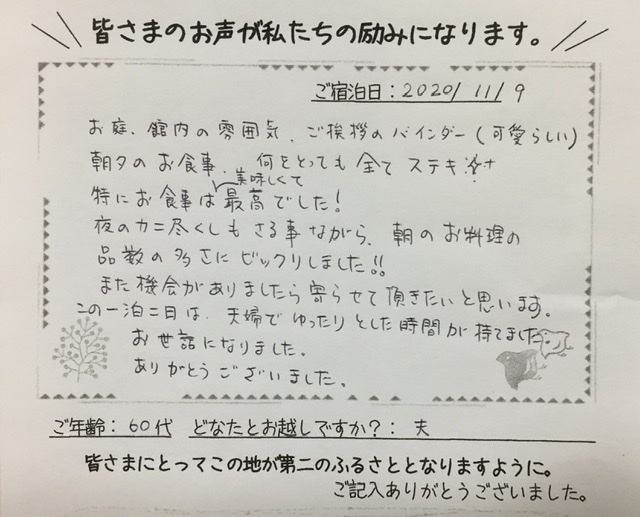 皆さまのお声が私たちの励みになります。
ご宿泊日：2020/11/9
お庭、館内の雰囲気、ご挨拶のバインダー(可愛らしい)
朝夕のお食事、何をとっても全てステキ
美味しくて
特にお食事は最高でした!
夜のカニ尽くしもさる事ながら、朝のお料理の
品数の多さにビックリしました!!
また機会がありましたら寄らせて頂きたいと思います。
この一泊二日は、夫婦でゆったりとした時間が持てました。
お世話になりました。
ありがとうございました。
ご年齢：60代 どなたとお越しですか？：夫
皆さまにとってこの地が第二のふるさととなりますように。
ご記入ありがとうございました。